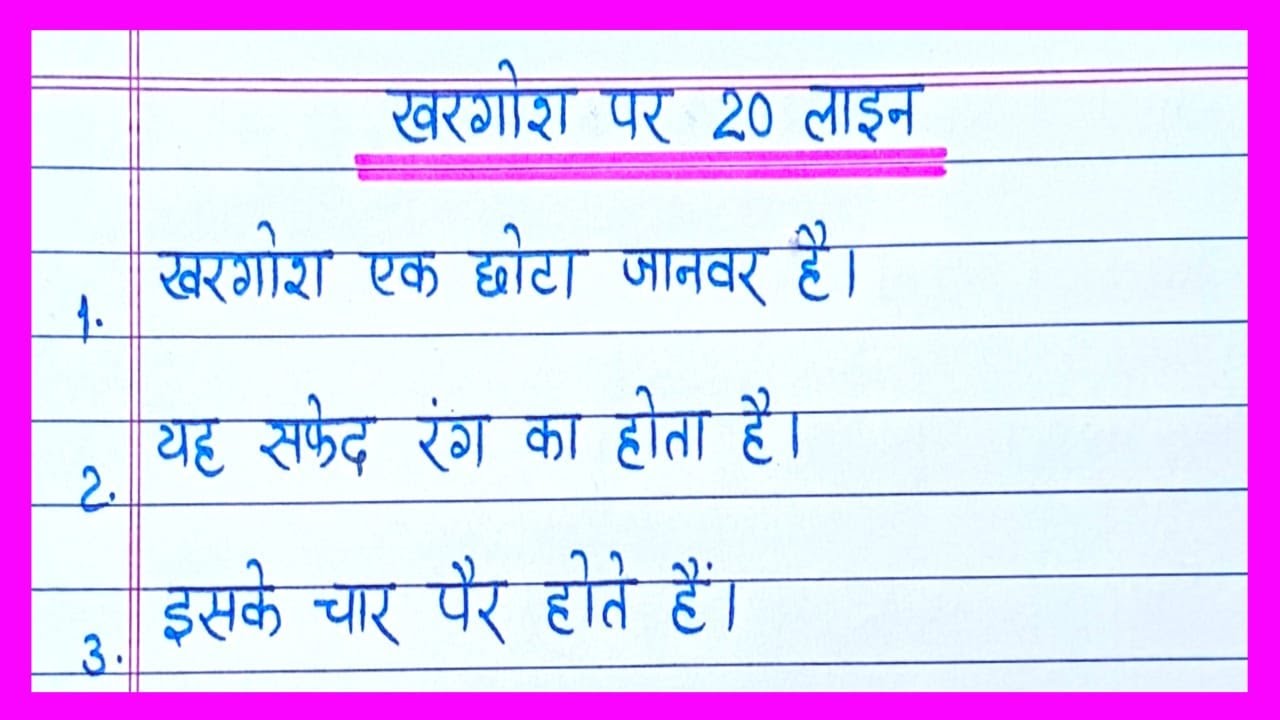 खरगोश पर 20 लाइन
1. खरगोश एक छोटा जानवर है।
2. यह सफेद रंग का होता है।
3. इसके चार पैर होते हैं।